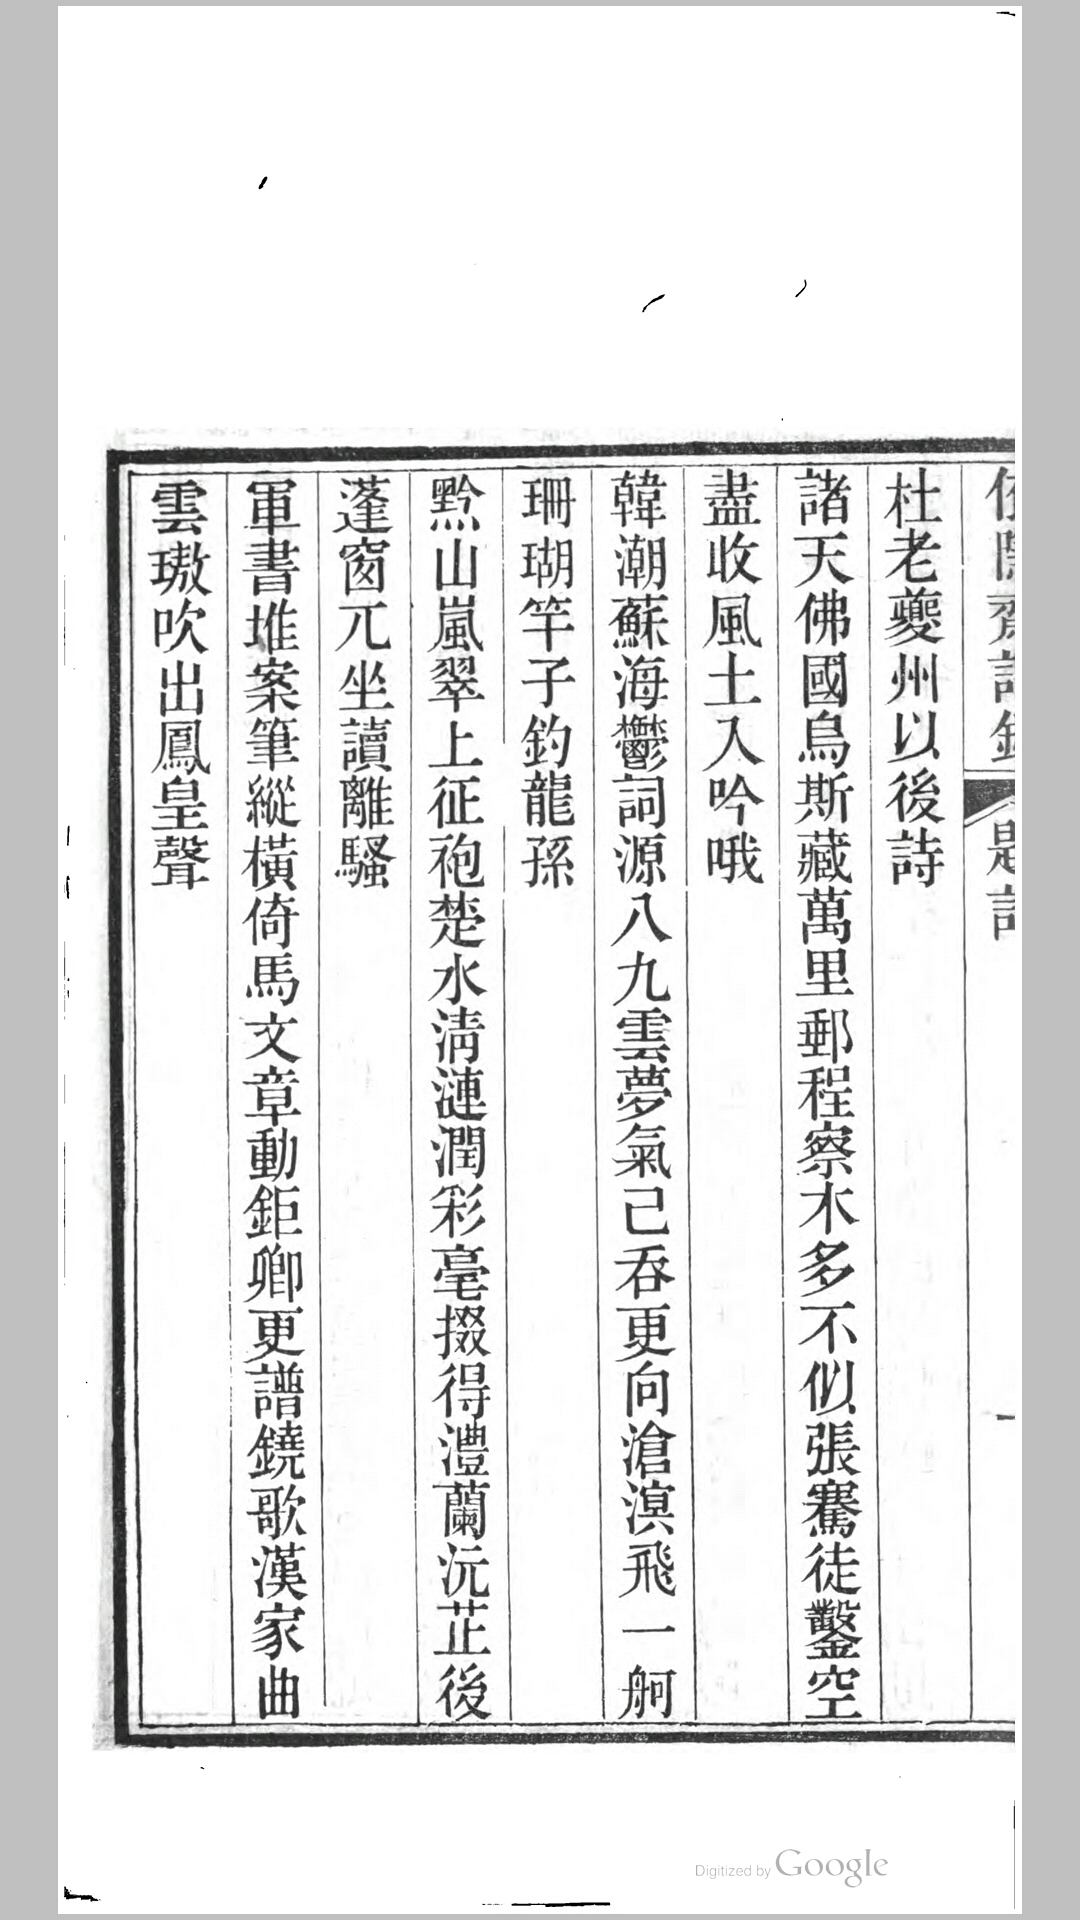 杜老夔州以後詩
諸天佛國烏斯藏萬里郵程察木多不似張騫徒鑿空
盡收風土入吟哦
韓潮蘇海鬱詞源八九雲夢氣己吞更向滄溟飛一舸
珊瑚竿子釣龍孫
黔山嵐翠上征袍楚水淸漣潤彩毫掇得澧蘭沅芷後
蓬窗兀坐讀離騷
軍書堆案筆縱橫倚馬文章動鉅卿更譜鐃歌漢家曲
雲璈吹出鳳皇聲
Digitized by Google